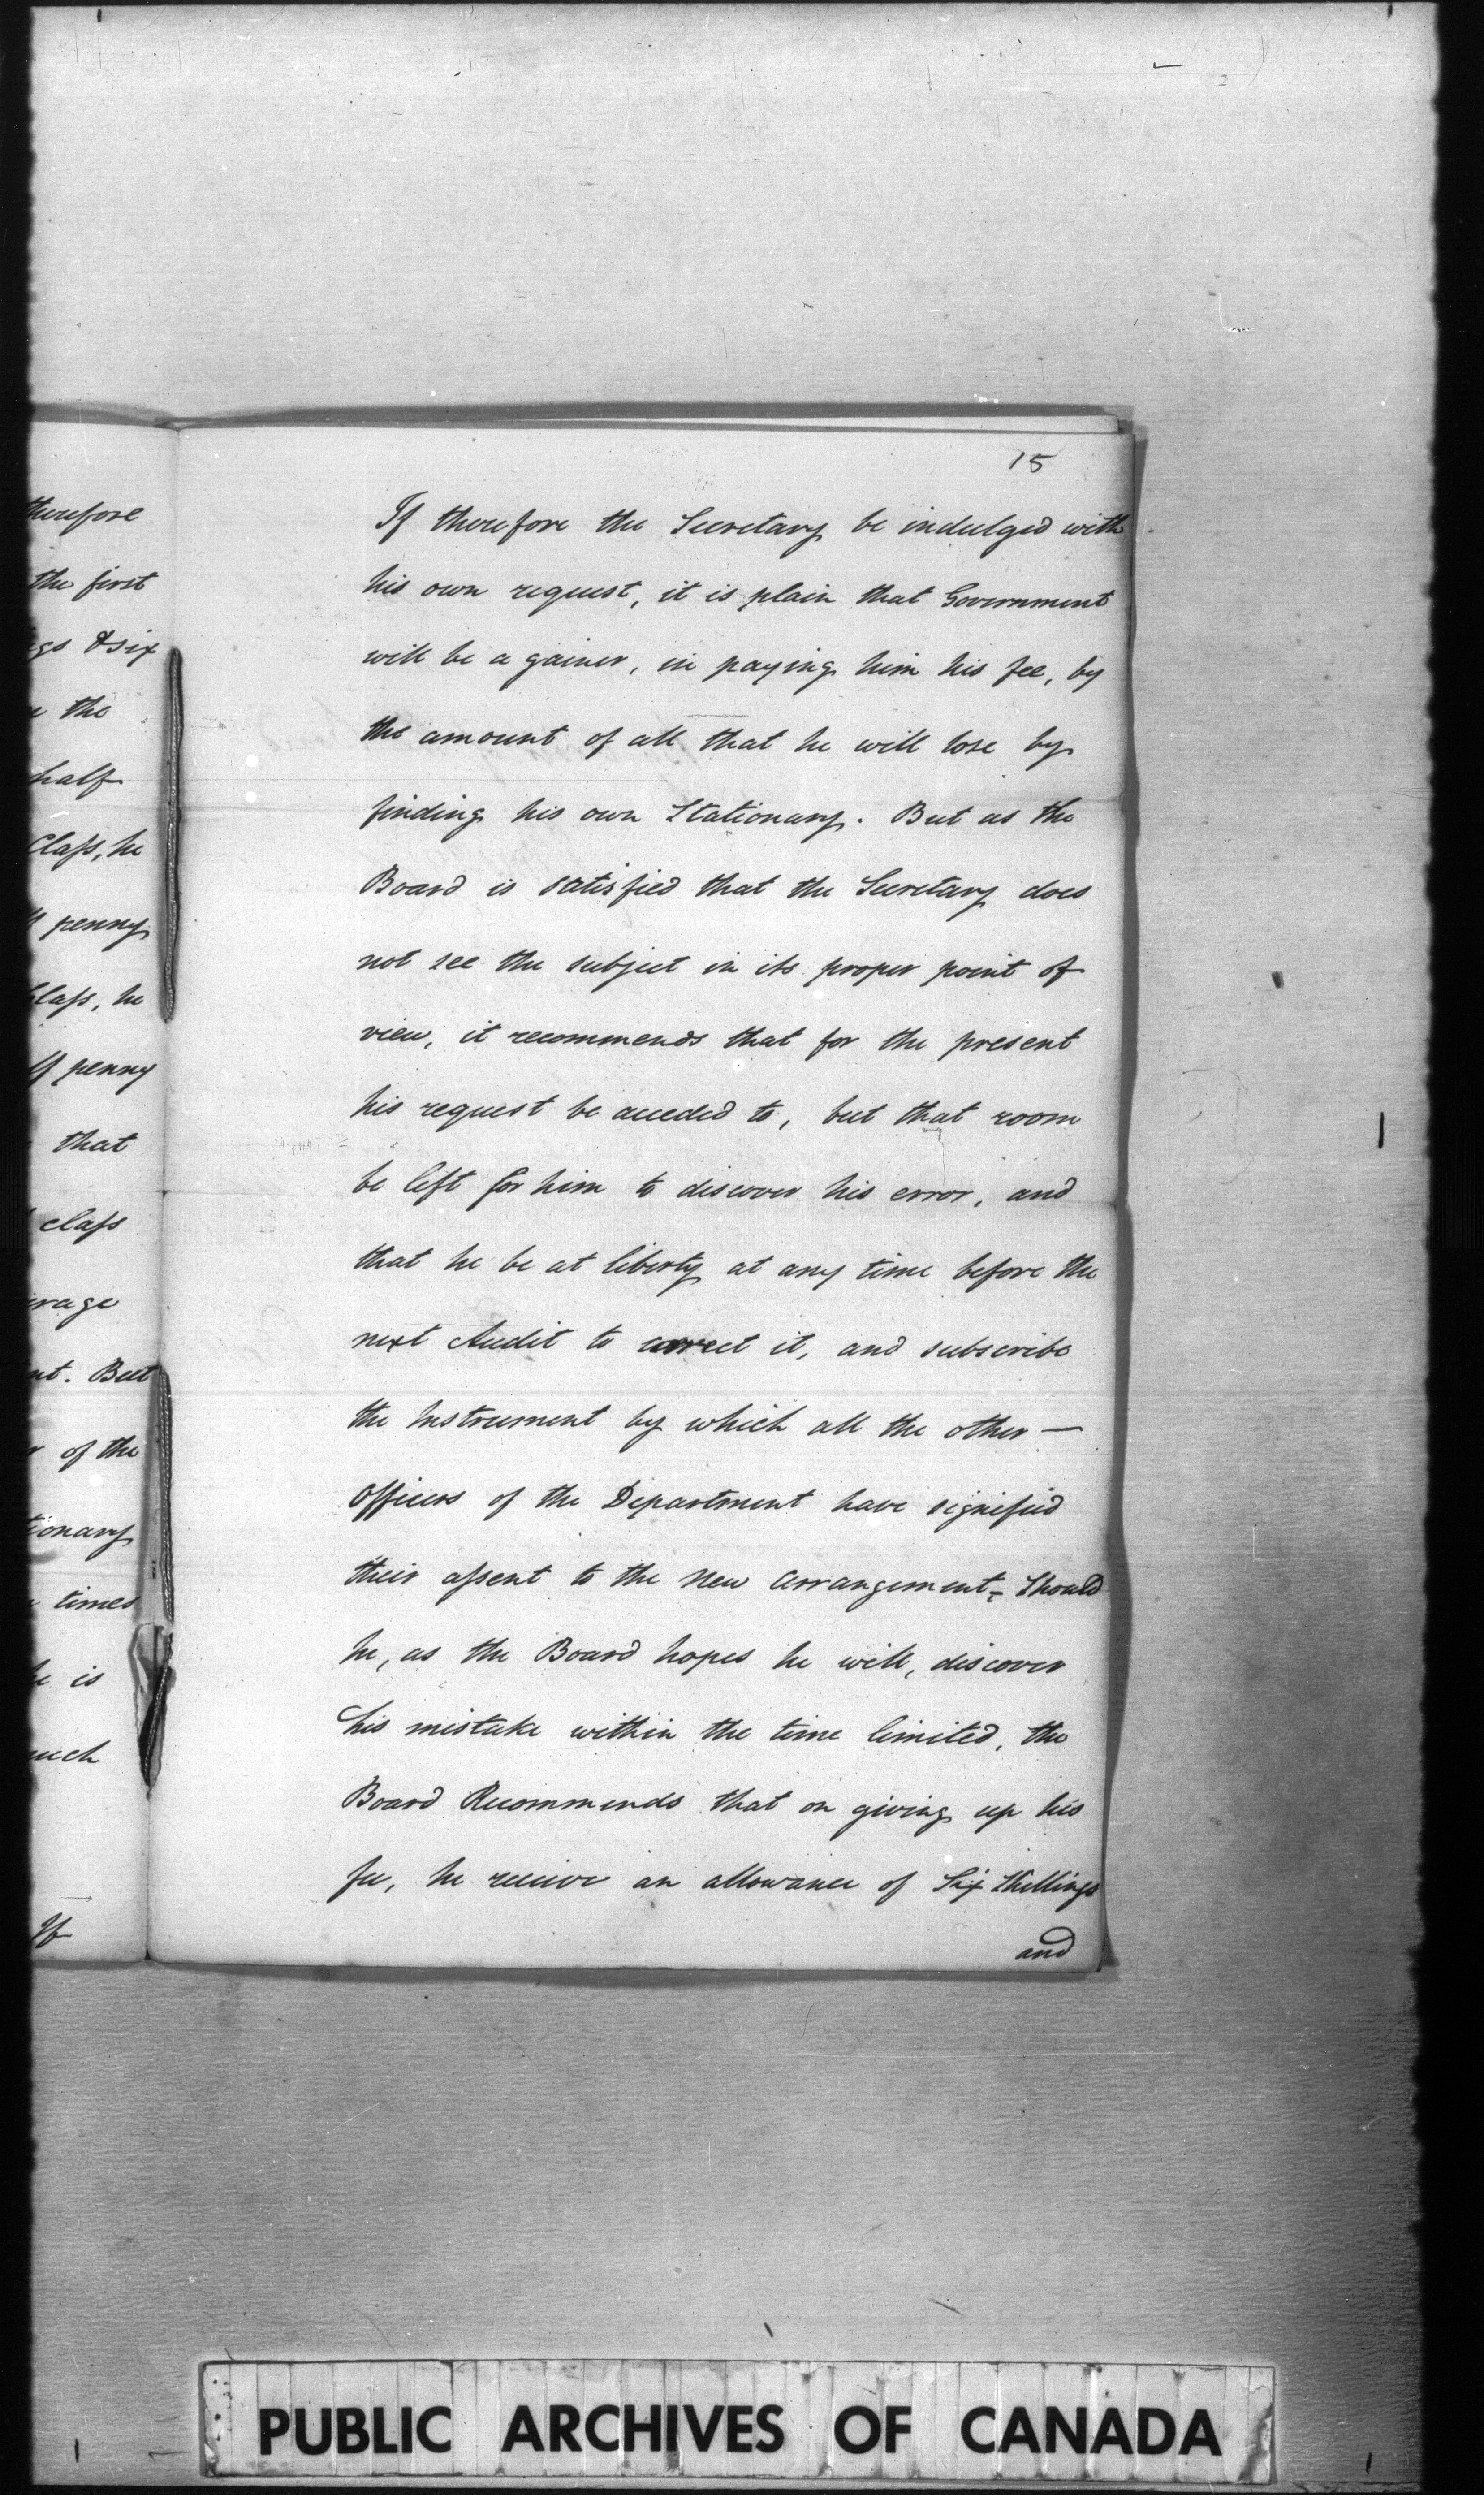 therefore
the first
gs & six
the
half
Class, he
penny
Class, he
penny
that
class
erage
nt. But
of the
tionary
times
he is
much
If
15
If therefore the Secretary be indulged with
his own request, it is plain that Government
will be a gainer, in paying him his fee, by
the amount of all that he will lose by
finding his own Stationary. But as the
Board is satisfied that the Secretary does
not see the subject in its proper point of
view, it recommends that for the present
his request be acceded to, but that room
be left for him to discover his error, and
that he be at liberty at any time before the
next Audit to correct it, and subscribe
the Instrument by which all the other —
officers of the Department have signified
their assent to the New Arrangement. Should
he, as the Board hopes he will, discover
his mistake within the time limited, the
Board Recommends that on giving up his
fee, he receive an allowance of Six Shillings
and
PUBLIC ARCHIVES OF CANADA